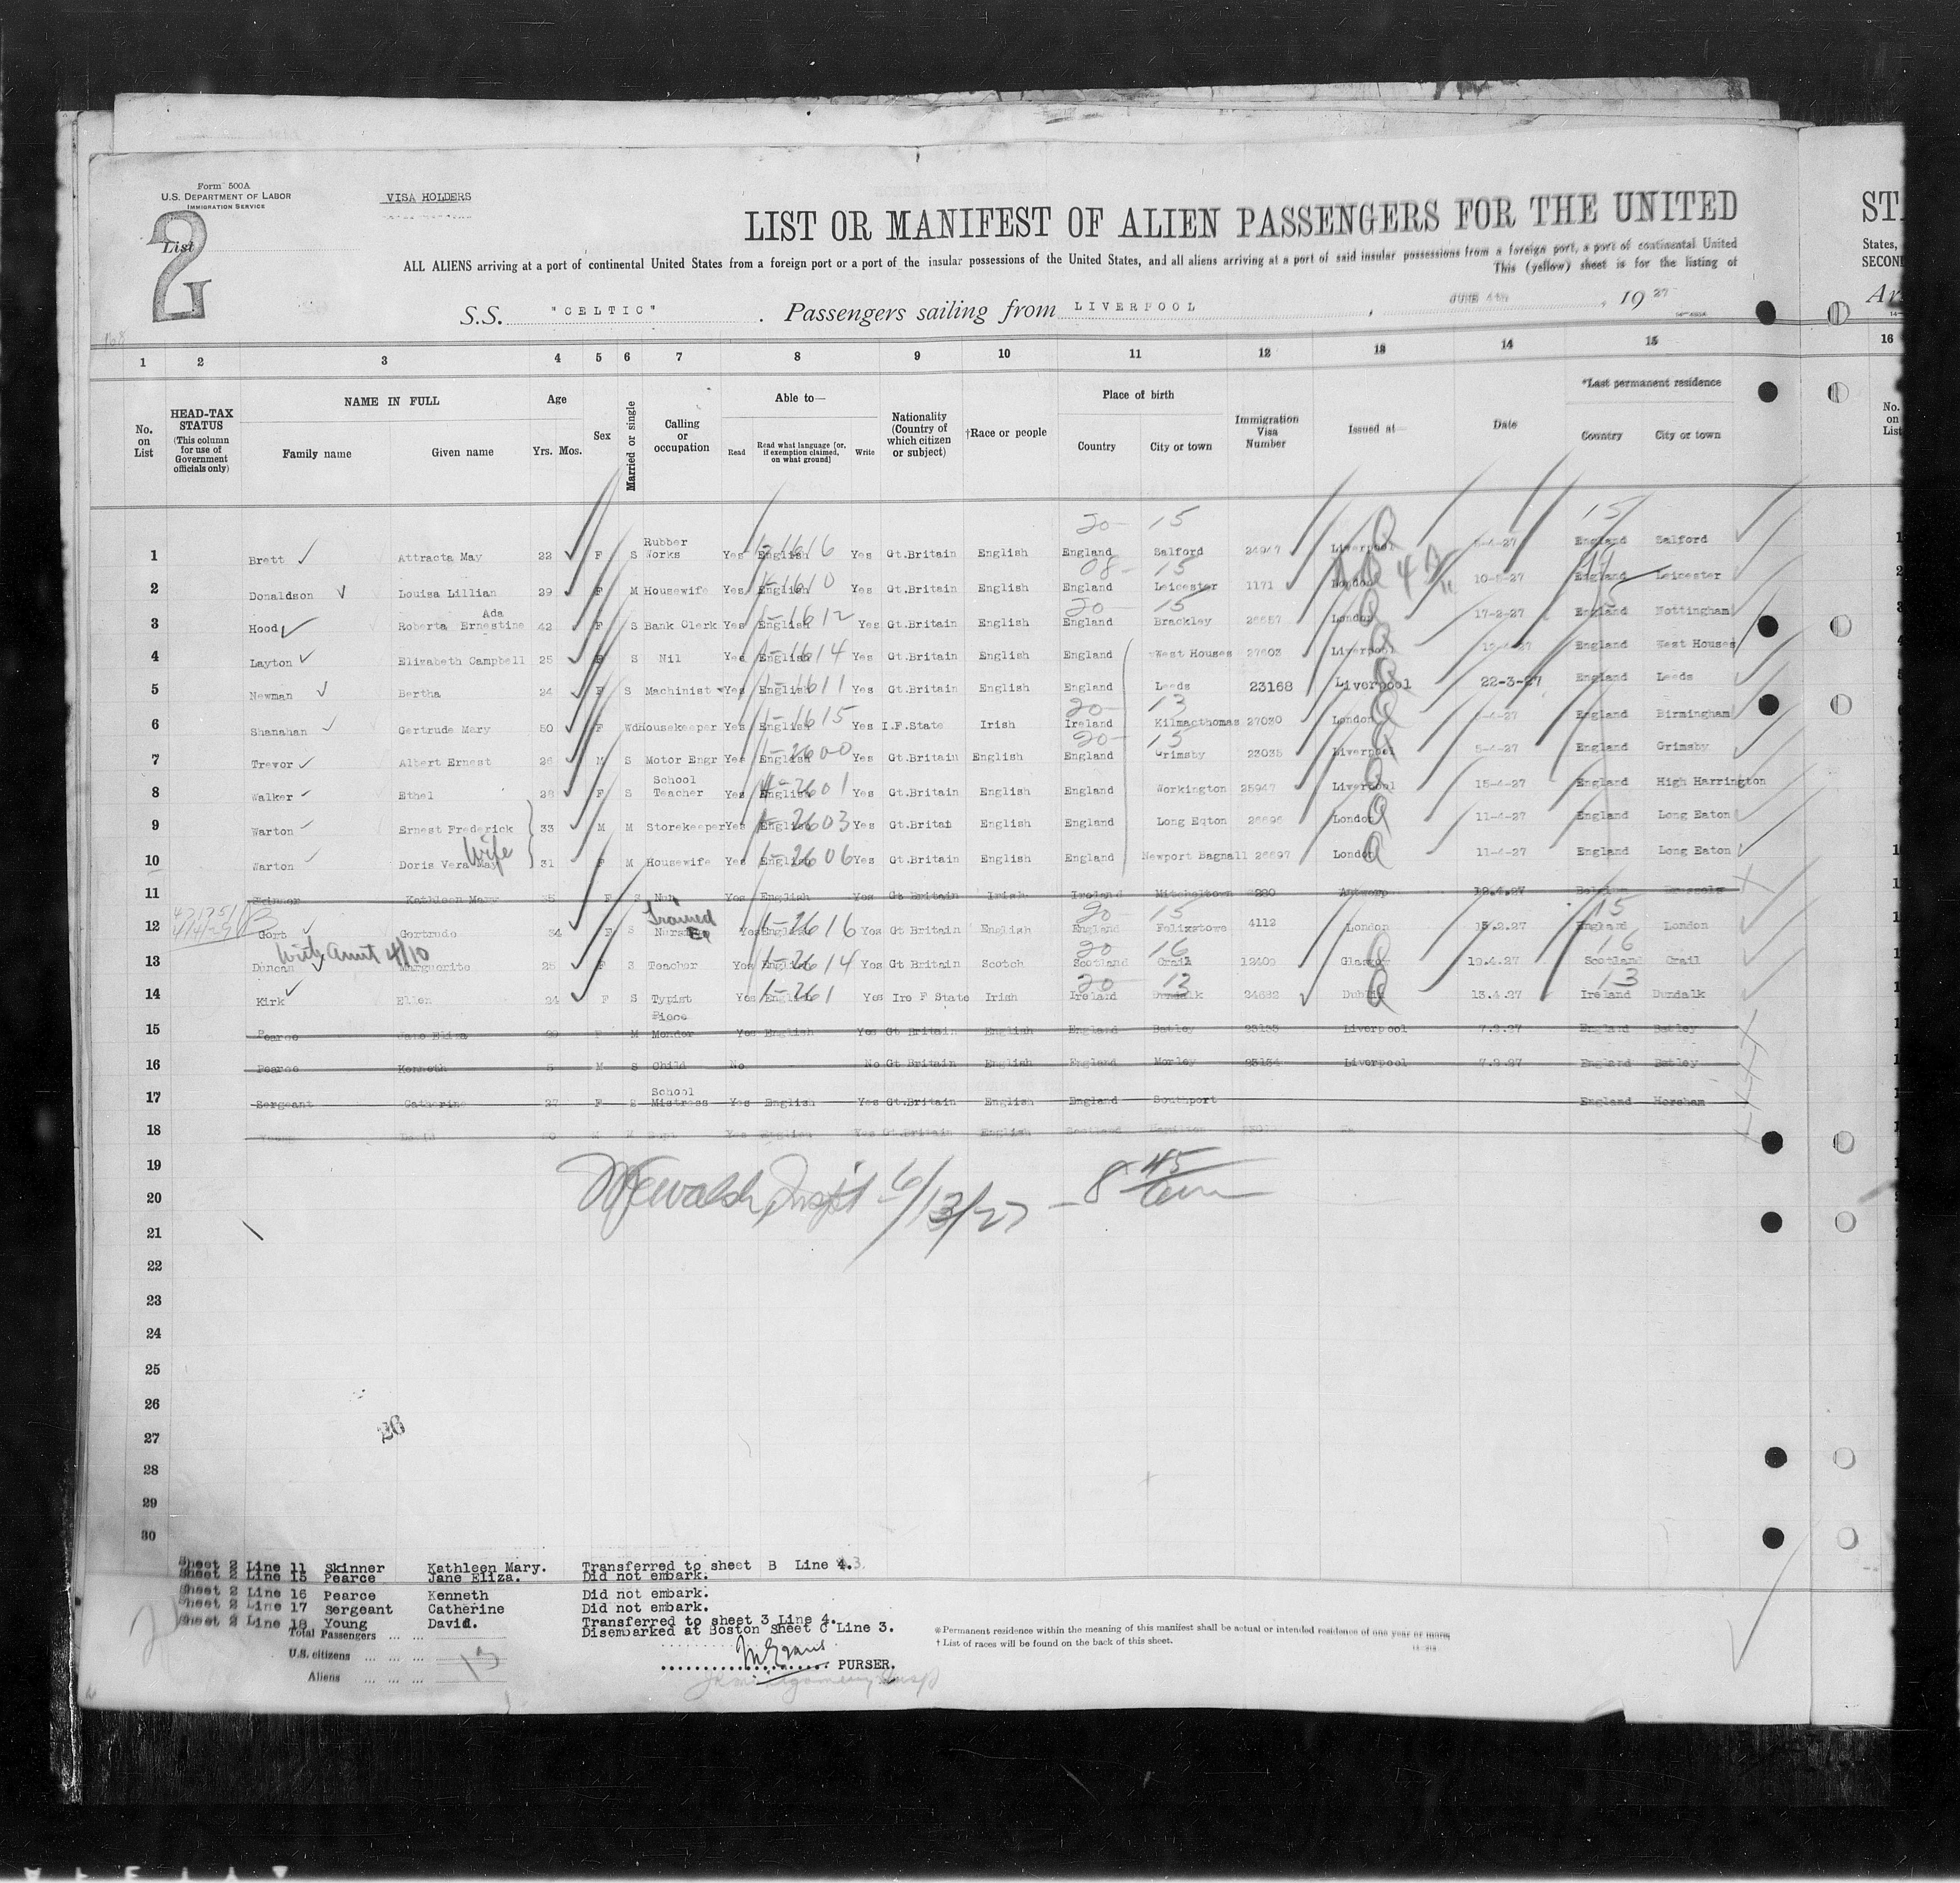 Form 500A
U.S. DEPARTMENT OF LABOR
IMMIGRATION SERVICE
VISA HOLDERS
List
2
LIST OR MANIFEST OF ALIEN PASSENGERS FOR THE UNITED
STA
ALL ALIENS arriving at a port of continental United States from a foreign port or a port of the insular possessions of the United States, and all aliens arriving at a port of said insular possessions from a foreign port, a port of continental United
States,
This (yellow) sheet is for the listing of
SECON
S.S. "CELTIC" . Passengers sailing from LIVERPOOL , JUNE 4TH , 19 27
Ar
1 2 3 4 5 6 7 8 9 10 11 12 13 14 15 16
No. on List
HEAD-TAX STATUS (This column for use of Government officials only)
NAME IN FULL
Family name Given name
Age
Yrs. Mos.
Sex
Married or single
Calling or occupation
Able to—
Read Read what language [or, if exemption claimed, on what ground] Write
Nationality (Country of which citizen or subject)
†Race or people
Place of birth
Country City or town
Immigration Visa Number
Issued at—
Date
*Last permanent residence
Country City or town
No. on List
20- 15 15
1 Brett Attracta May 22 F S Rubber Works Yes English 1-1616 Yes Gt.Britain English England Salford 24947 Liverpool 4-27 England Salford
08- 15
2 Donaldson Louisa Lillian 29 F M Housewife Yes English 1-1610 Yes Gt.Britain English England Leicester 1171 London 27 England Leicester
20- 15
3 Hood Roberta Ernestine Ada 42 F S Bank Clerk Yes English 1-1612 Yes Gt.Britain English England Brackley 26657 London 17-2-27 England Nottingham
4 Layton Elizabeth Campbell 25 F S Nil Yes English 1-1614 Yes Gt.Britain English England West Houses 27603 Liverpool England West Houses
5 Newman Bertha 24 F S Machinist Yes English 1-1611 Yes Gt.Britain English England Leeds 23168 Liverpool 22-3-27 England Leeds
20- 13
6 Shanahan Gertrude Mary 50 F Wd Housekeeper Yes English 1-1615 Yes I.F.State Irish Ireland Kilmacthomas 27030 London 4-27 England Birmingham
20- 15
7 Trevor Albert Ernest 26 M S Motor Engr Yes English 1-2600 Yes Gt.Britain English England Grimsby 23035 Liverpool 5-4-27 England Grimsby
8 Walker Ethel 28 F S School Teacher Yes English 2601 Yes Gt.Britain English England Workington 25947 Liverpool 15-4-27 England High Harrington
9 Warton Ernest Frederick 33 M M Storekeeper Yes English 1-2603 Yes Gt.Britai English England Long Eqton 26696 London 11-4-27 England Long Eaton
Wife
10 Warton Doris Vera May 31 F M Housewife Yes English 1-2606 Yes Gt.Britain English England Newport Bagnall 26697 London 11-4-27 England Long Eaton
11 Skinner Kathleen Mary 35 F S Nun Yes English Yes Gt Britain Irish Ireland Mitchelstown 280 Antwerp 12.4.27 Belgium Brussels
Trained 20 15 15
12 Gort Gertrude 34 F S Yes English 1-2616 Yes Gt Britain English England Felixstowe 4112 London 15.2.27 England London
With Aunt 4/10 20 16 16
13 Duncan Marguerite 25 F S Teacher Yes English 1-2614 Yes Gt Britain Scotch Scotland Crail 12402 Glasgow 19.4.27 Scotland Crail
20 13 13
14 Kirk Ellen 24 F S Typist Yes English 1-261 Yes Ire F State Irish Ireland Dundalk 24682 Dublin 13.4.27 Ireland Dundalk
15 Pearce Jane Eliza 29 F M Piece Mender Yes English Yes Gt Britain English England Batley 23133 Liverpool 7.2.27 England Batley
16 Pearce Kenneth 5 M S Child No No Gt Britain English England Morley 23134 Liverpool 7.2.27 England Batley
17 Sergeant Catherine 27 F S School Mistress Yes English Yes Gt.Britain English England Southport England Horsham
18 Young David Yes English Yes Gt.Britain English Scotland Hamilton
19
20
Walsh Inspt 6/13/27 - 8 45
21
22
23
24
25
26
27
28
29
30
Sheet 2 Line 11 Skinner Kathleen Mary. Transferred to sheet B Line 4.3.
Sheet 2 Line 15 Pearce Jane Eliza. Did not embark.
Sheet 2 Line 16 Pearce Kenneth Did not embark.
Sheet 2 Line 17 Sergeant Catherine Did not embark.
Sheet 2 Line 18 Young David. Transferred to sheet 3 Line 4.
Disembarked at Boston Sheet C Line 3.
Total Passengers ... ...
U.S. citizens ... ... ...
Aliens ... ... ... 13
PURSER.
*Permanent residence within the meaning of this manifest shall be actual or intended residence of one year or more.
† List of races will be found on the back of this sheet.